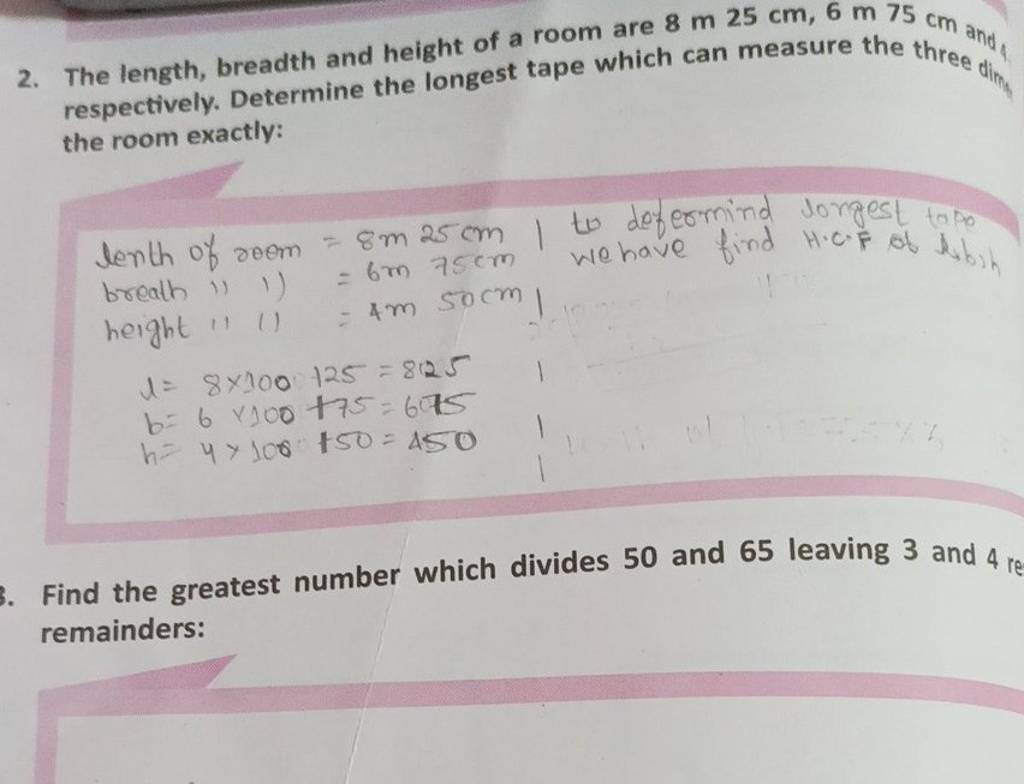 2. The length, breadth and height of a room are 8 m 25 cm, 6 m 75 cm and 4
respectively. Determine the longest tape which can measure the three dime
the room exactly:
lenth of room = 8m 25 cm | to defermind longest tape
breath " " = 6m 75cm we have find H.C.F of l,b,h
height " " = 4m 50cm |
l = 8×100 +25 = 825 |
b= 6 ×100 +75 = 675
h= 4 × 100 +50 = 450 |
|
3. Find the greatest number which divides 50 and 65 leaving 3 and 4 re
remainders: